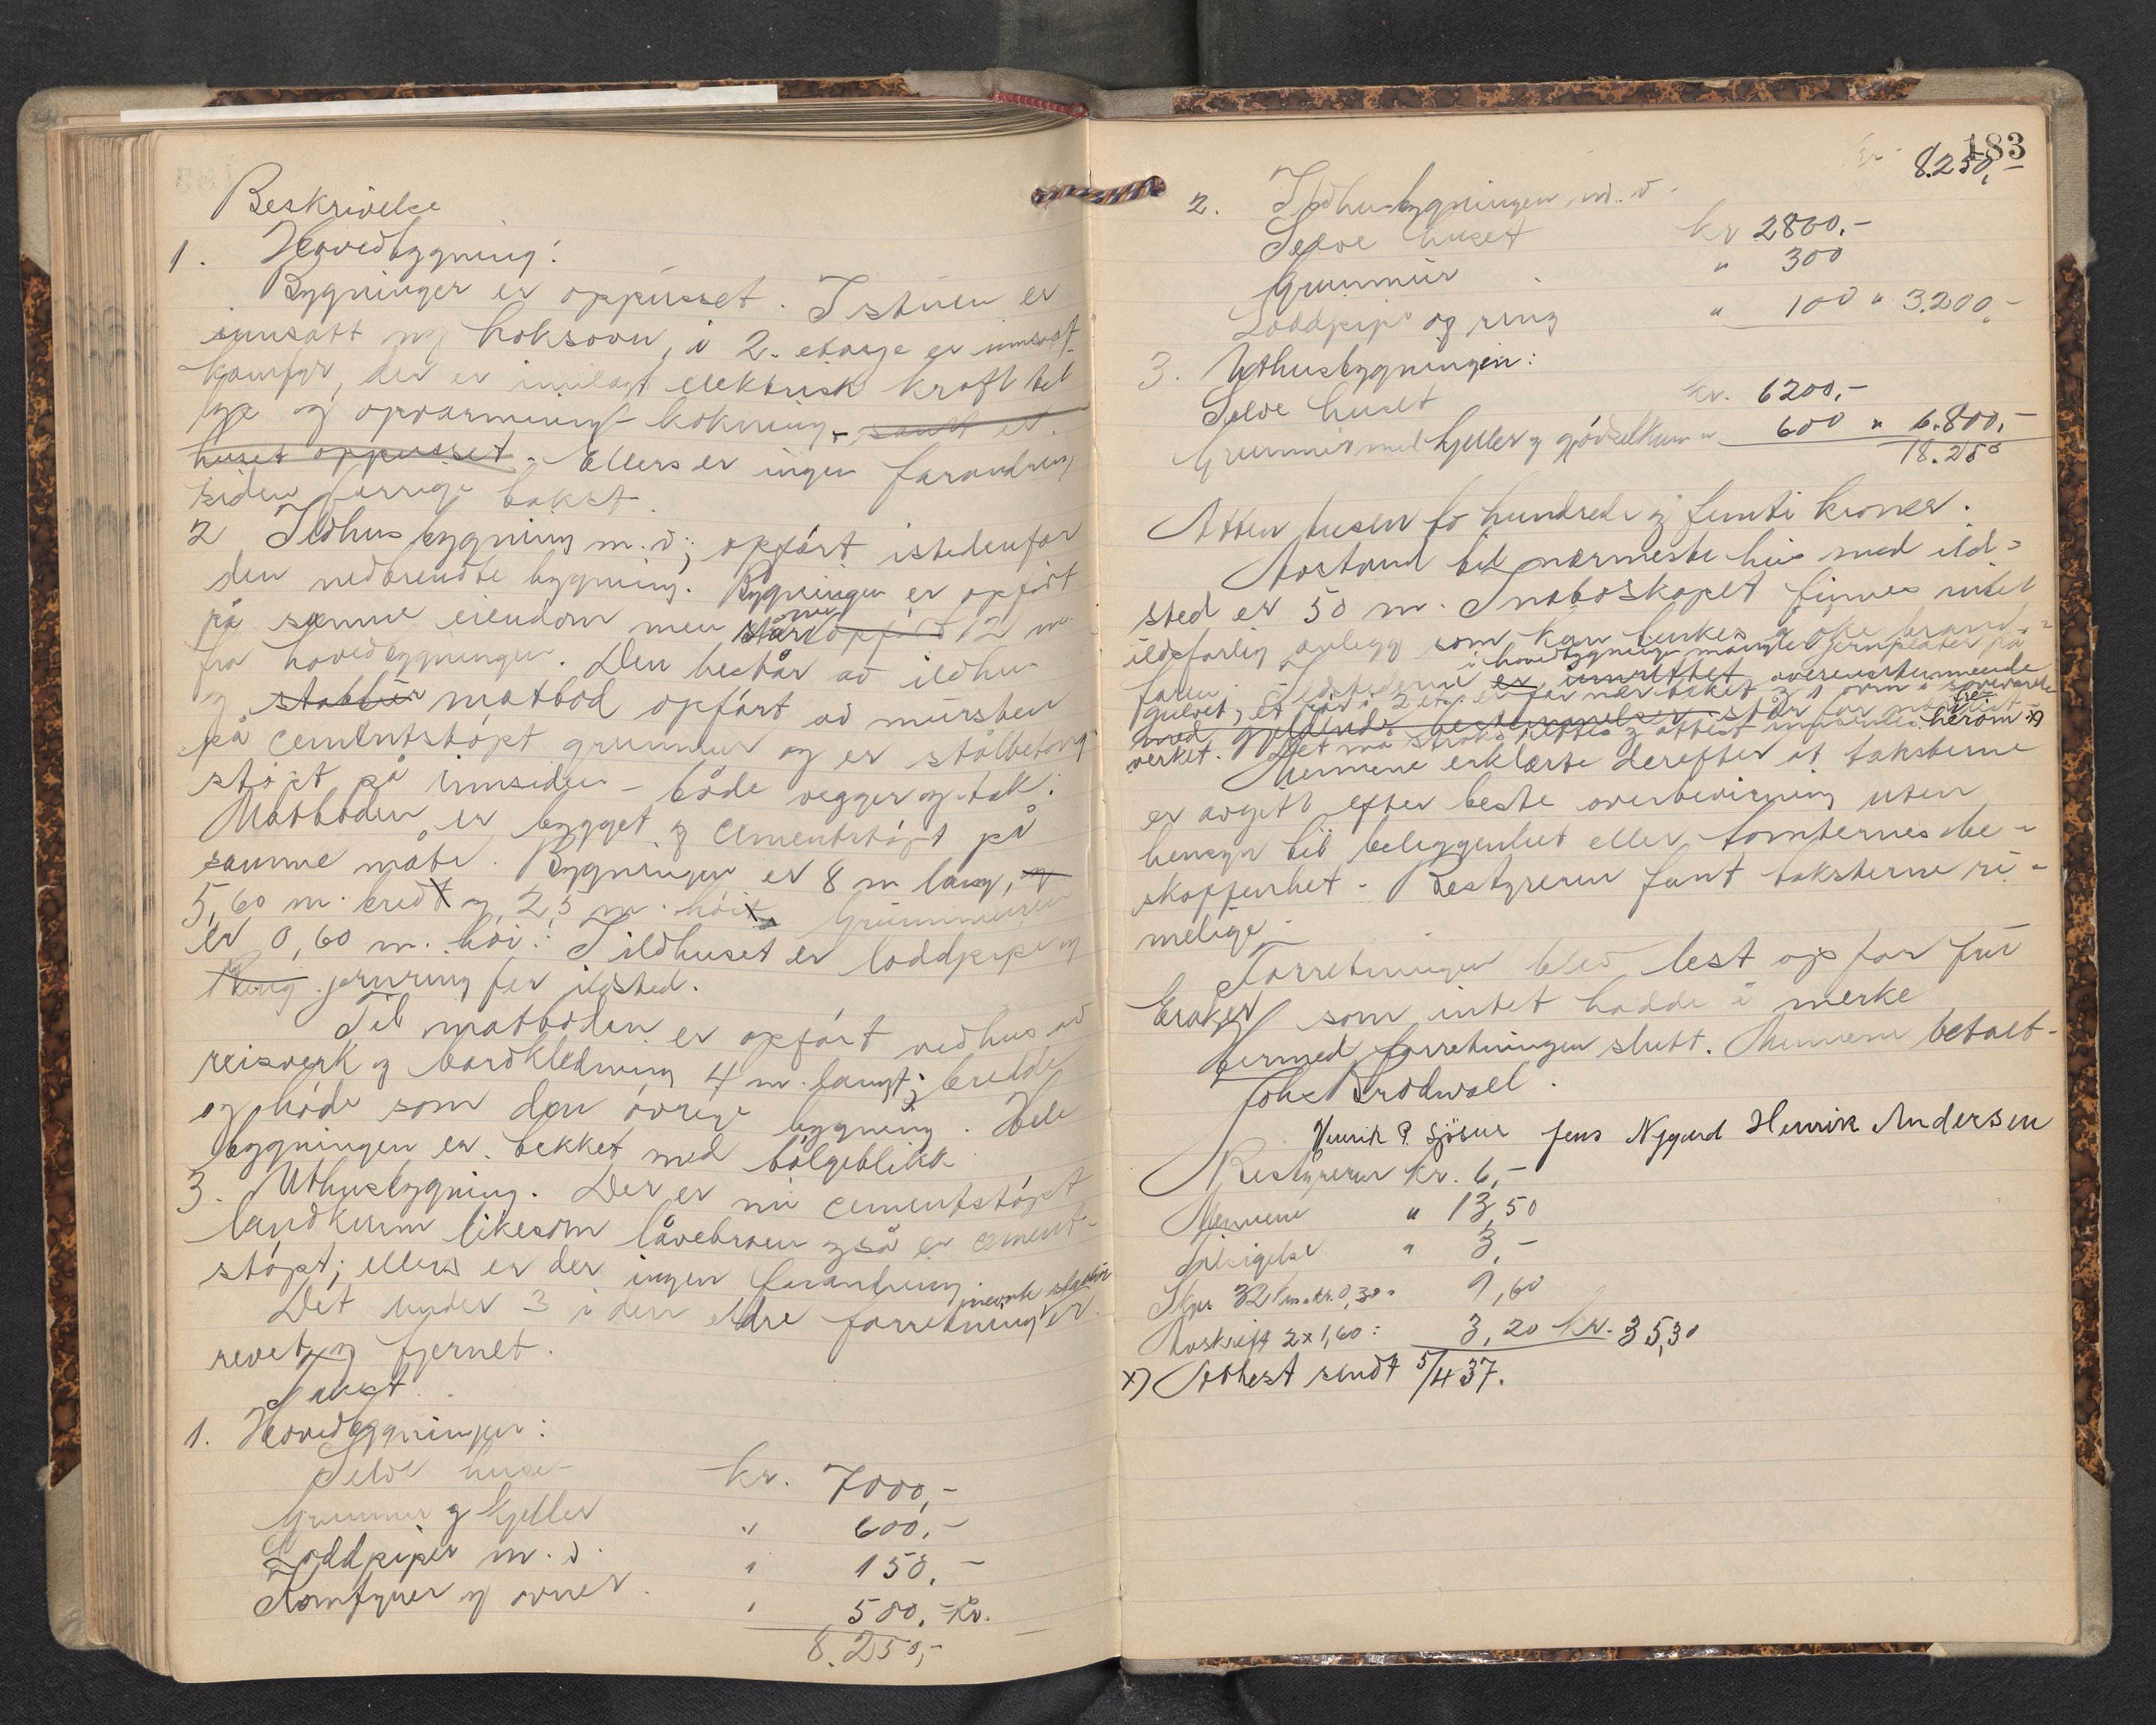 Beskrivelse
1. Hovedbygning:
Bygninger er oppusset. I stuen er
innsatt ny koksovn, i 2. etasje er innsatt
komfyr, der er innlagt elektrisk kraft til
lys og opvarming kokning, samt er
huset oppusset. Ellers er ingen forandring
siden forrige takst.
2 Ildhusbygning m.v; opført istedenfor
den nedbrendte bygning. Bygningen er opført
på samme eiendom men står nu opført 12 m.
fra hovedbygningen. Den består av ildhus
og stabbur matbod opført av mursten
på cementstøpt grunnmur og er stålbetong
støpt på innsiden - både vegger og tak.
Matboden er bygget og cementstøpt på
samme måte. Bygningen er 8 m lang, og
5,60 m. bredt og 2,5 m. høit. Grunnmuren
er 0,60 m. høi. I ildhuset er loddpipe og
Ring jernring for ildsted.
Til matboden er opført vedhus av
reisverk og bordkledning 4 m. langt; bredde
og høide som den øvrige bygning. Hele
bygningen er tekket med bølgeblikk
3. Uthusbygning. Der er nu cementstøpt
landkum likesom låvebroen også er cement-
støpt; ellers er der ingen forandring.
Det under 3 i den eldre forretning nevnte stabbur er
revet og fjernet.
Takst.
1. Hovedbygningen:
Selve huset kr. 7000,-
Grunnmur og kjeller " 600,-
Loddpiper m.v. " 150,-
Komfyrer og ovner " 500,- kr.
8.250,-
183
kr. 8.250,-
2. Ildhusbygningen m.v.
Selve huset kr 2800,-
Grunnmur " 300
Loddpipe og ring " 100 " 3.200,-
3. Uthusbygningen:
Selve huset kr. 6200,-
Grunnmur med kjeller og gjødselkum " 600 " 6.800,-
18.250
Atten tusen to hundrede og femti kroner.
Avstand til nærmeste hus med ild-
sted er 50 m. I naboskapet finnes intet
ildsfarlig anlegg som kan tenkes å øke brand-
faren. Ildstederne er innrettet overensstemmende
i hovedbygningen mangler jernplater på
gulvet, et rør i 2 etg. er for nær taket og 1 ovn i
med gjeldende bestemmelser står for nær tre-
verket. Det må straks rettes og attest innsendes herom x)
Mennene erklærte derefter at taksterne
er avgitt efter beste overbevisning uten
hensyn til beliggenhet eller tomternes be-
skaffenhet. Bestyreren fant taksterne ri-
melige.
Forretningen blev lest op for fru
Eraker som intet hadde å merke
Hermed forretningen slutt. Mennene betalt.
Johs Brodwall.
Henrik P. Sjøsur Jens Nygard Henrik Andersen
Bestyreren kr. 6,-
Mennene " 13,50
" 3,-
Skyss 32 km a kr. 0,30 " 9,60
Avskrift 2 x 1,60: 3,20 kr. 35,30
x) Attest sendt 5/4 37.